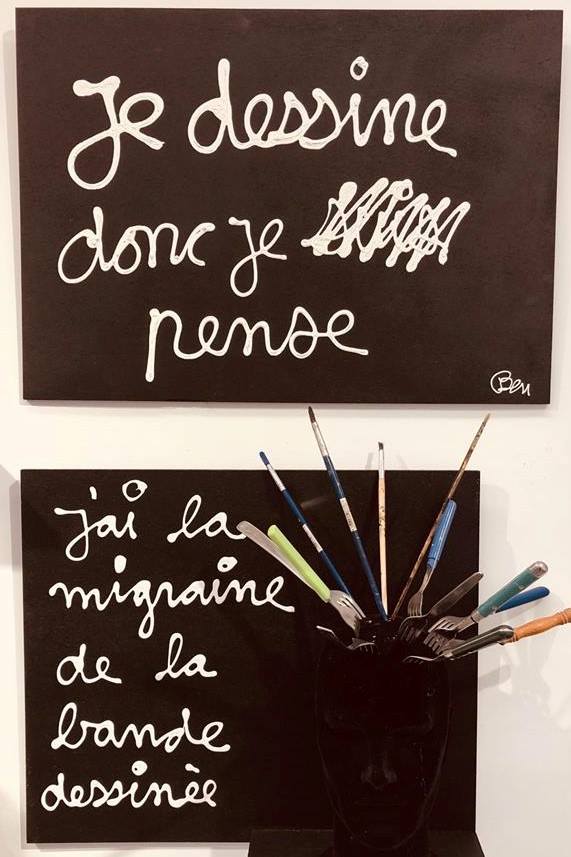 Je dessine
donc je
pense
Ben
j'ai la
migraine
de la
bande
dessinèe